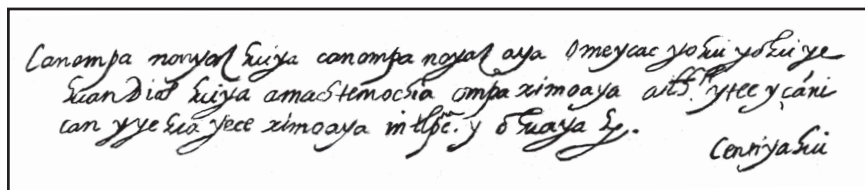 Canompa nonyaz huiya canompa noyaz aya Omeycac yohui yohui ye
huan Dios huiya amach temochia ompa ximoaya ytec y çani
can yyehua yece ximoaya in tlpc. y ohuaya &.
Cenniyahui